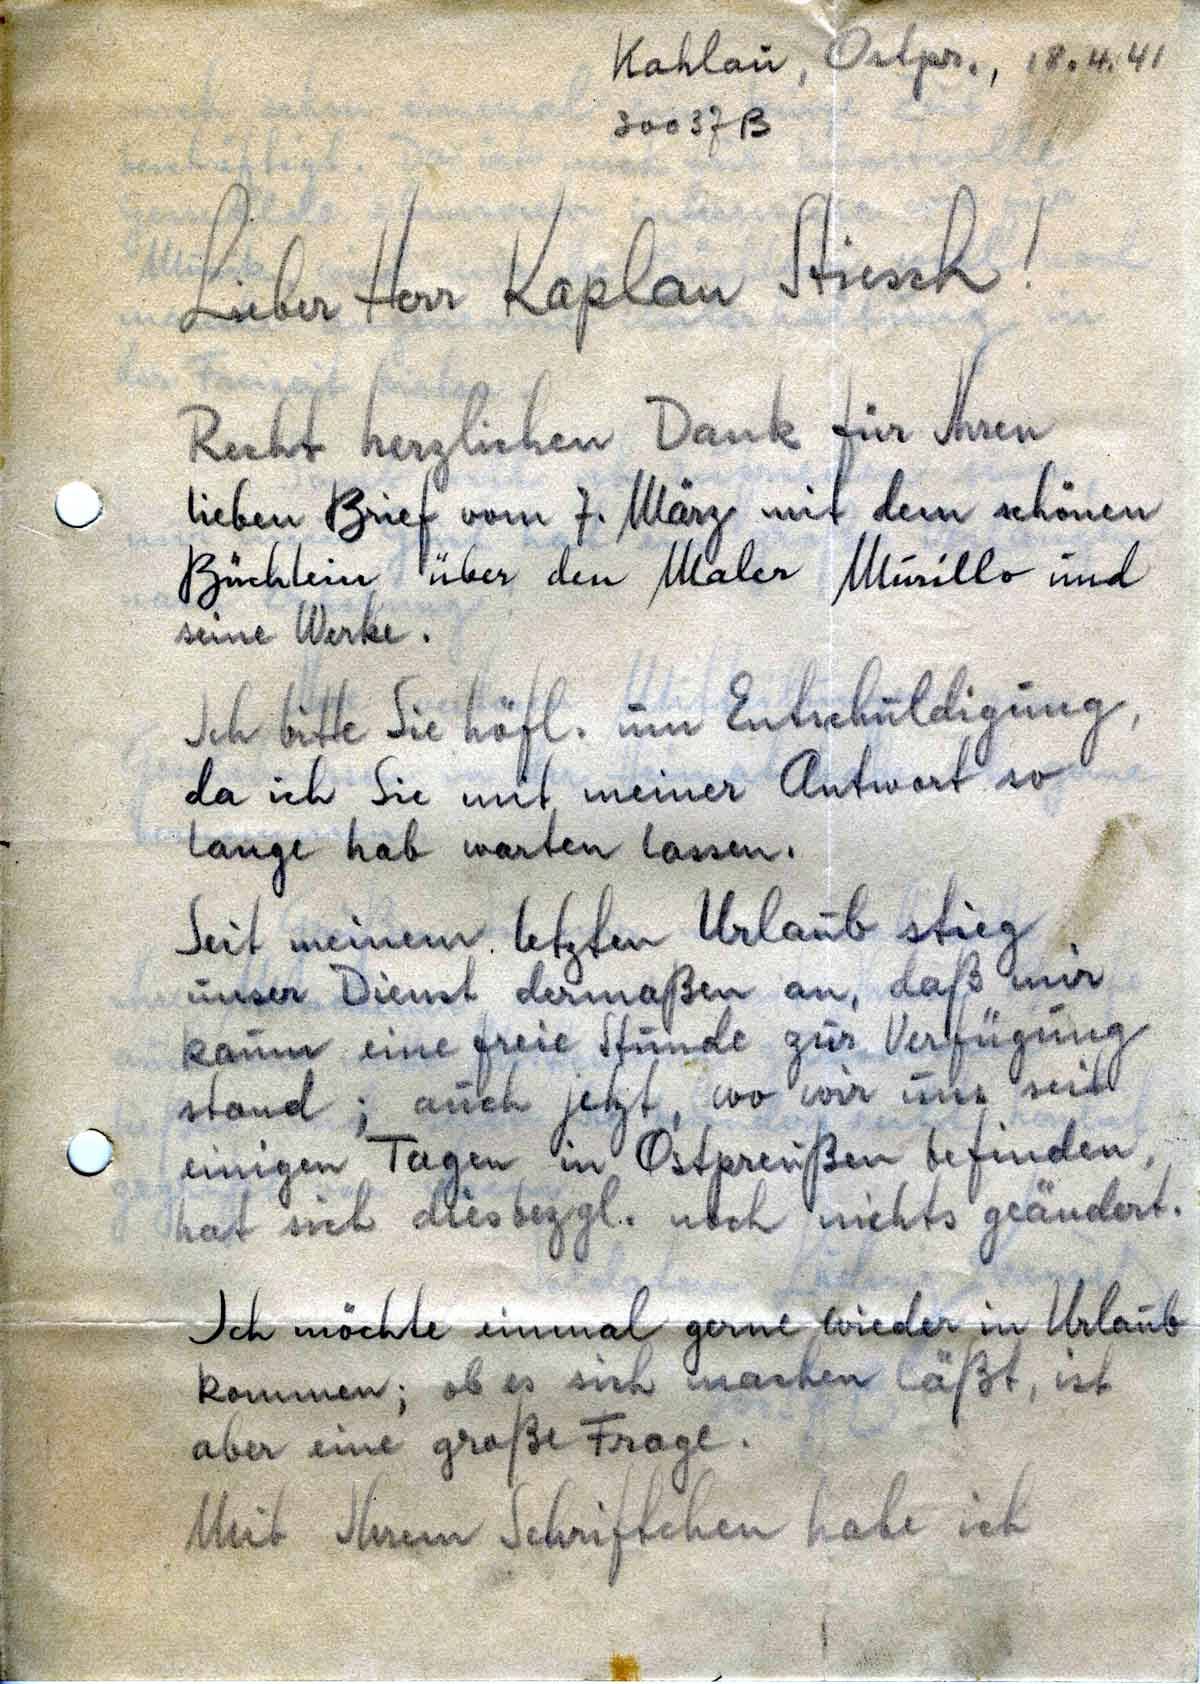 Kahlau, Ostpr., 18.4.41
30037B
Lieber Herr Kaplan Stiesch!
Recht herzlichen Dank für Ihren
lieben Brief vom 7. März mit dem schönen
Büchlein über den Maler Murillo und
seine Werke.
Ich bitte Sie höfl. um Entschuldigung,
da ich Sie mit meiner Antwort so
lange hab warten lassen.
Seit meinem letzten Urlaub stieg
unser Dienst dermaßen an, daß mir
kaum eine freie Stunde zur Verfügung
stand; auch jetzt, wo wir uns seit
einigen Tagen in Ostpreußen befinden,
hat sich diesbezgl. noch nichts geändert.
Ich möchte einmal gerne wieder in Urlaub
kommen; ob es sich machen läßt, ist
aber eine große Frage.
Mit Ihrem Schriftchen habe ich